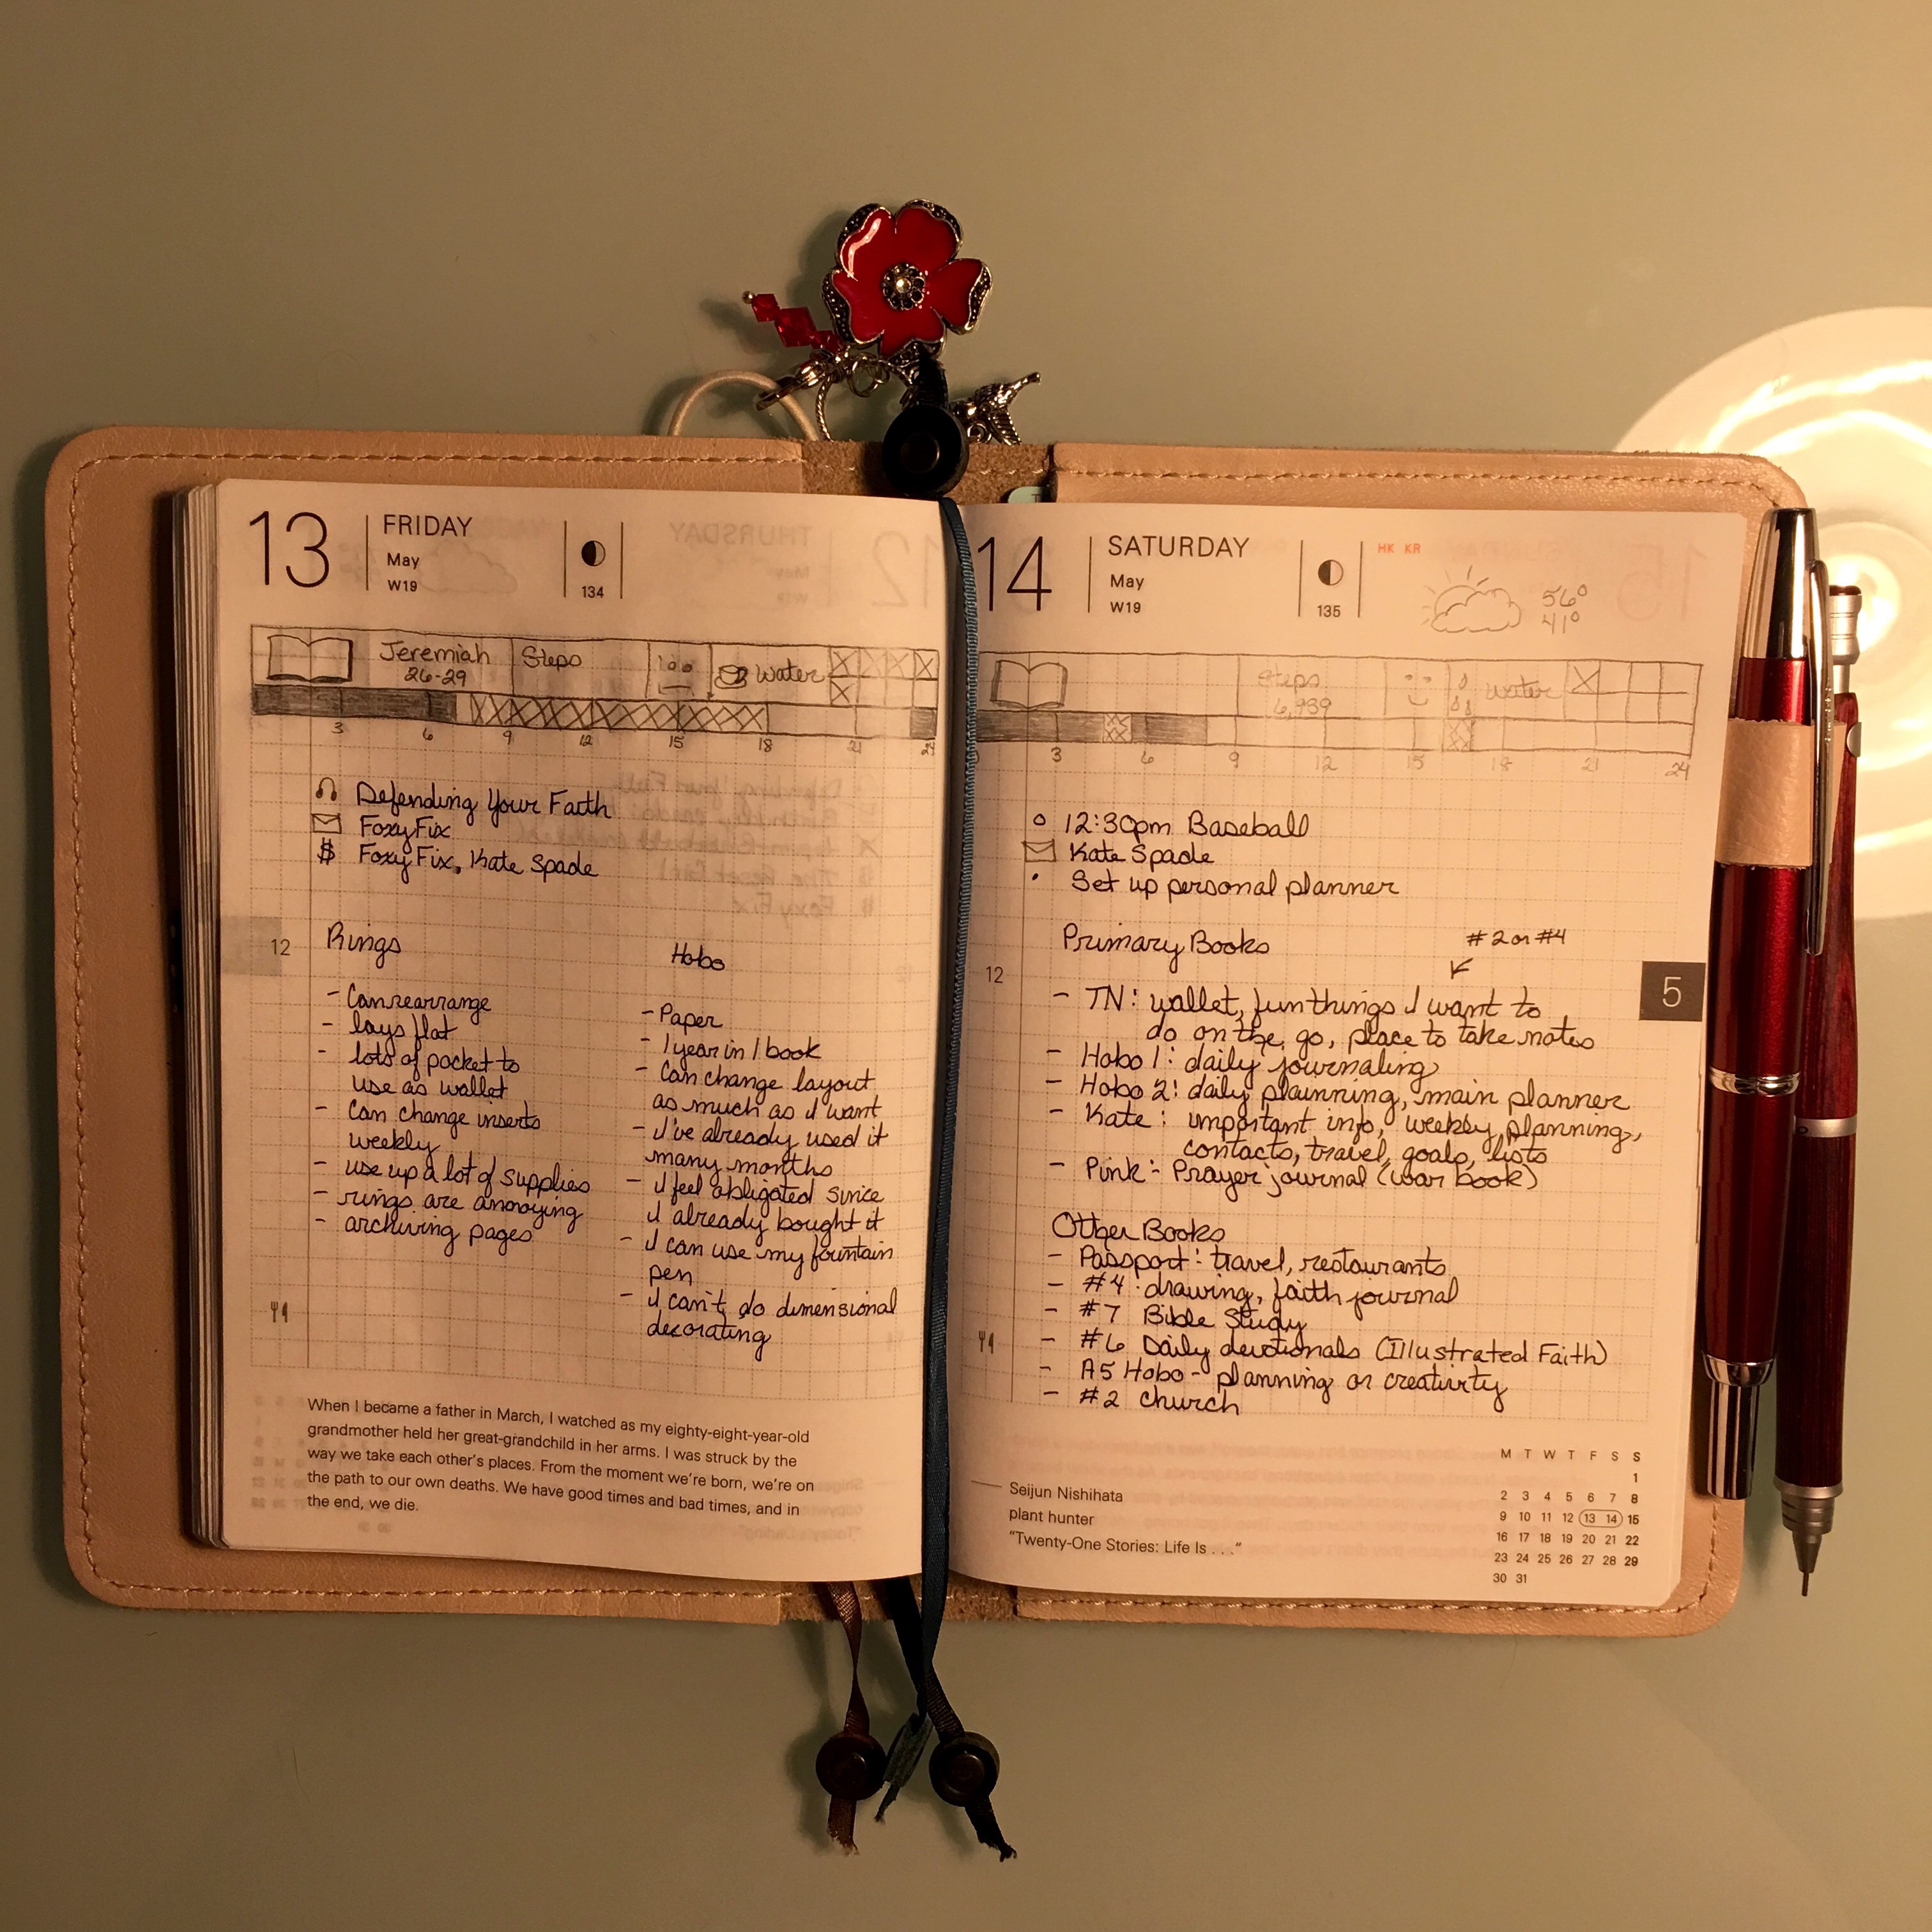 13
FRIDAY
May
W19
134
Jeremiah
26-29
Steps
Water
3 6 9 12 15 18 21
Defending Your Faith
FoxyFix
$ FoxyFix, Kate Spade
12
Rings
- Can rearrange
- lays flat
- lots of pocket to
use as wallet
- can change inserts
weekly
- use up a lot of supplies
- rings are annoying
- archiving pages
Hobo
- Paper
- 1 year in 1 book
- Can change layout
as much as I want
- I've already used it
many months
- I feel obligated since
I already bought it
- I can use my fountain
pen
- I can't do dimensional
decorating
When I became a father in March, I watched as my eighty-eight-year-old
grandmother held her great-grandchild in her arms. I was struck by the
way we take each other's places. From the moment we're born, we're on
the path to our own deaths. We have good times and bad times, and in
the end, we die.
14
SATURDAY
May
W19
135
HK KR
56°
41°
Steps
6,939
water
3 6 9 12 15 18 21 24
12:30pm Baseball
Kate Spade
Set up personal planner
5
12
Primary Books
#2 or #4
- TN: wallet, fun things I want to
do on the go, place to take notes
- Hobo 1: daily journaling
- Hobo 2: daily planning, main planner
- Kate: important info, weekly planning,
contacts, travel, goals, lists
- Pink - Prayer journal (war book)
Other Books
- Passport: travel, restaurants
- #4: drawing, faith journal
- #7 Bible Study
- #6 Daily devotionals (Illustrated Faith)
- A5 Hobo - planning or creativity
- #2 church
Seijun Nishihata
plant hunter
"Twenty-One Stories: Life Is . . ."
M T W T F S S
1
2 3 4 5 6 7 8
9 10 11 12 13 14 15
16 17 18 19 20 21 22
23 24 25 26 27 28 29
30 31